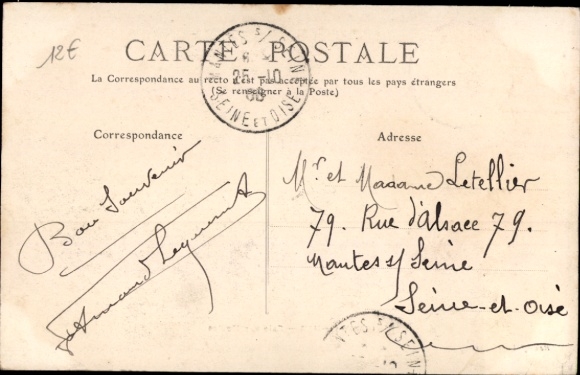 12€
CARTE POSTALE
MANTES S/ SEINE
25 -10
SEINE ET OISE
La Correspondance au recto n'est pas acceptée par tous les pays étrangers
(Se renseigner à la Poste)
Correspondance
Bon Souvenir
Armand
Adresse
Mr et Madame Letellier
79. Rue d'Alsace 79.
Mantes s/ Seine
Seine-et-Oise
NTES S/ SEINE